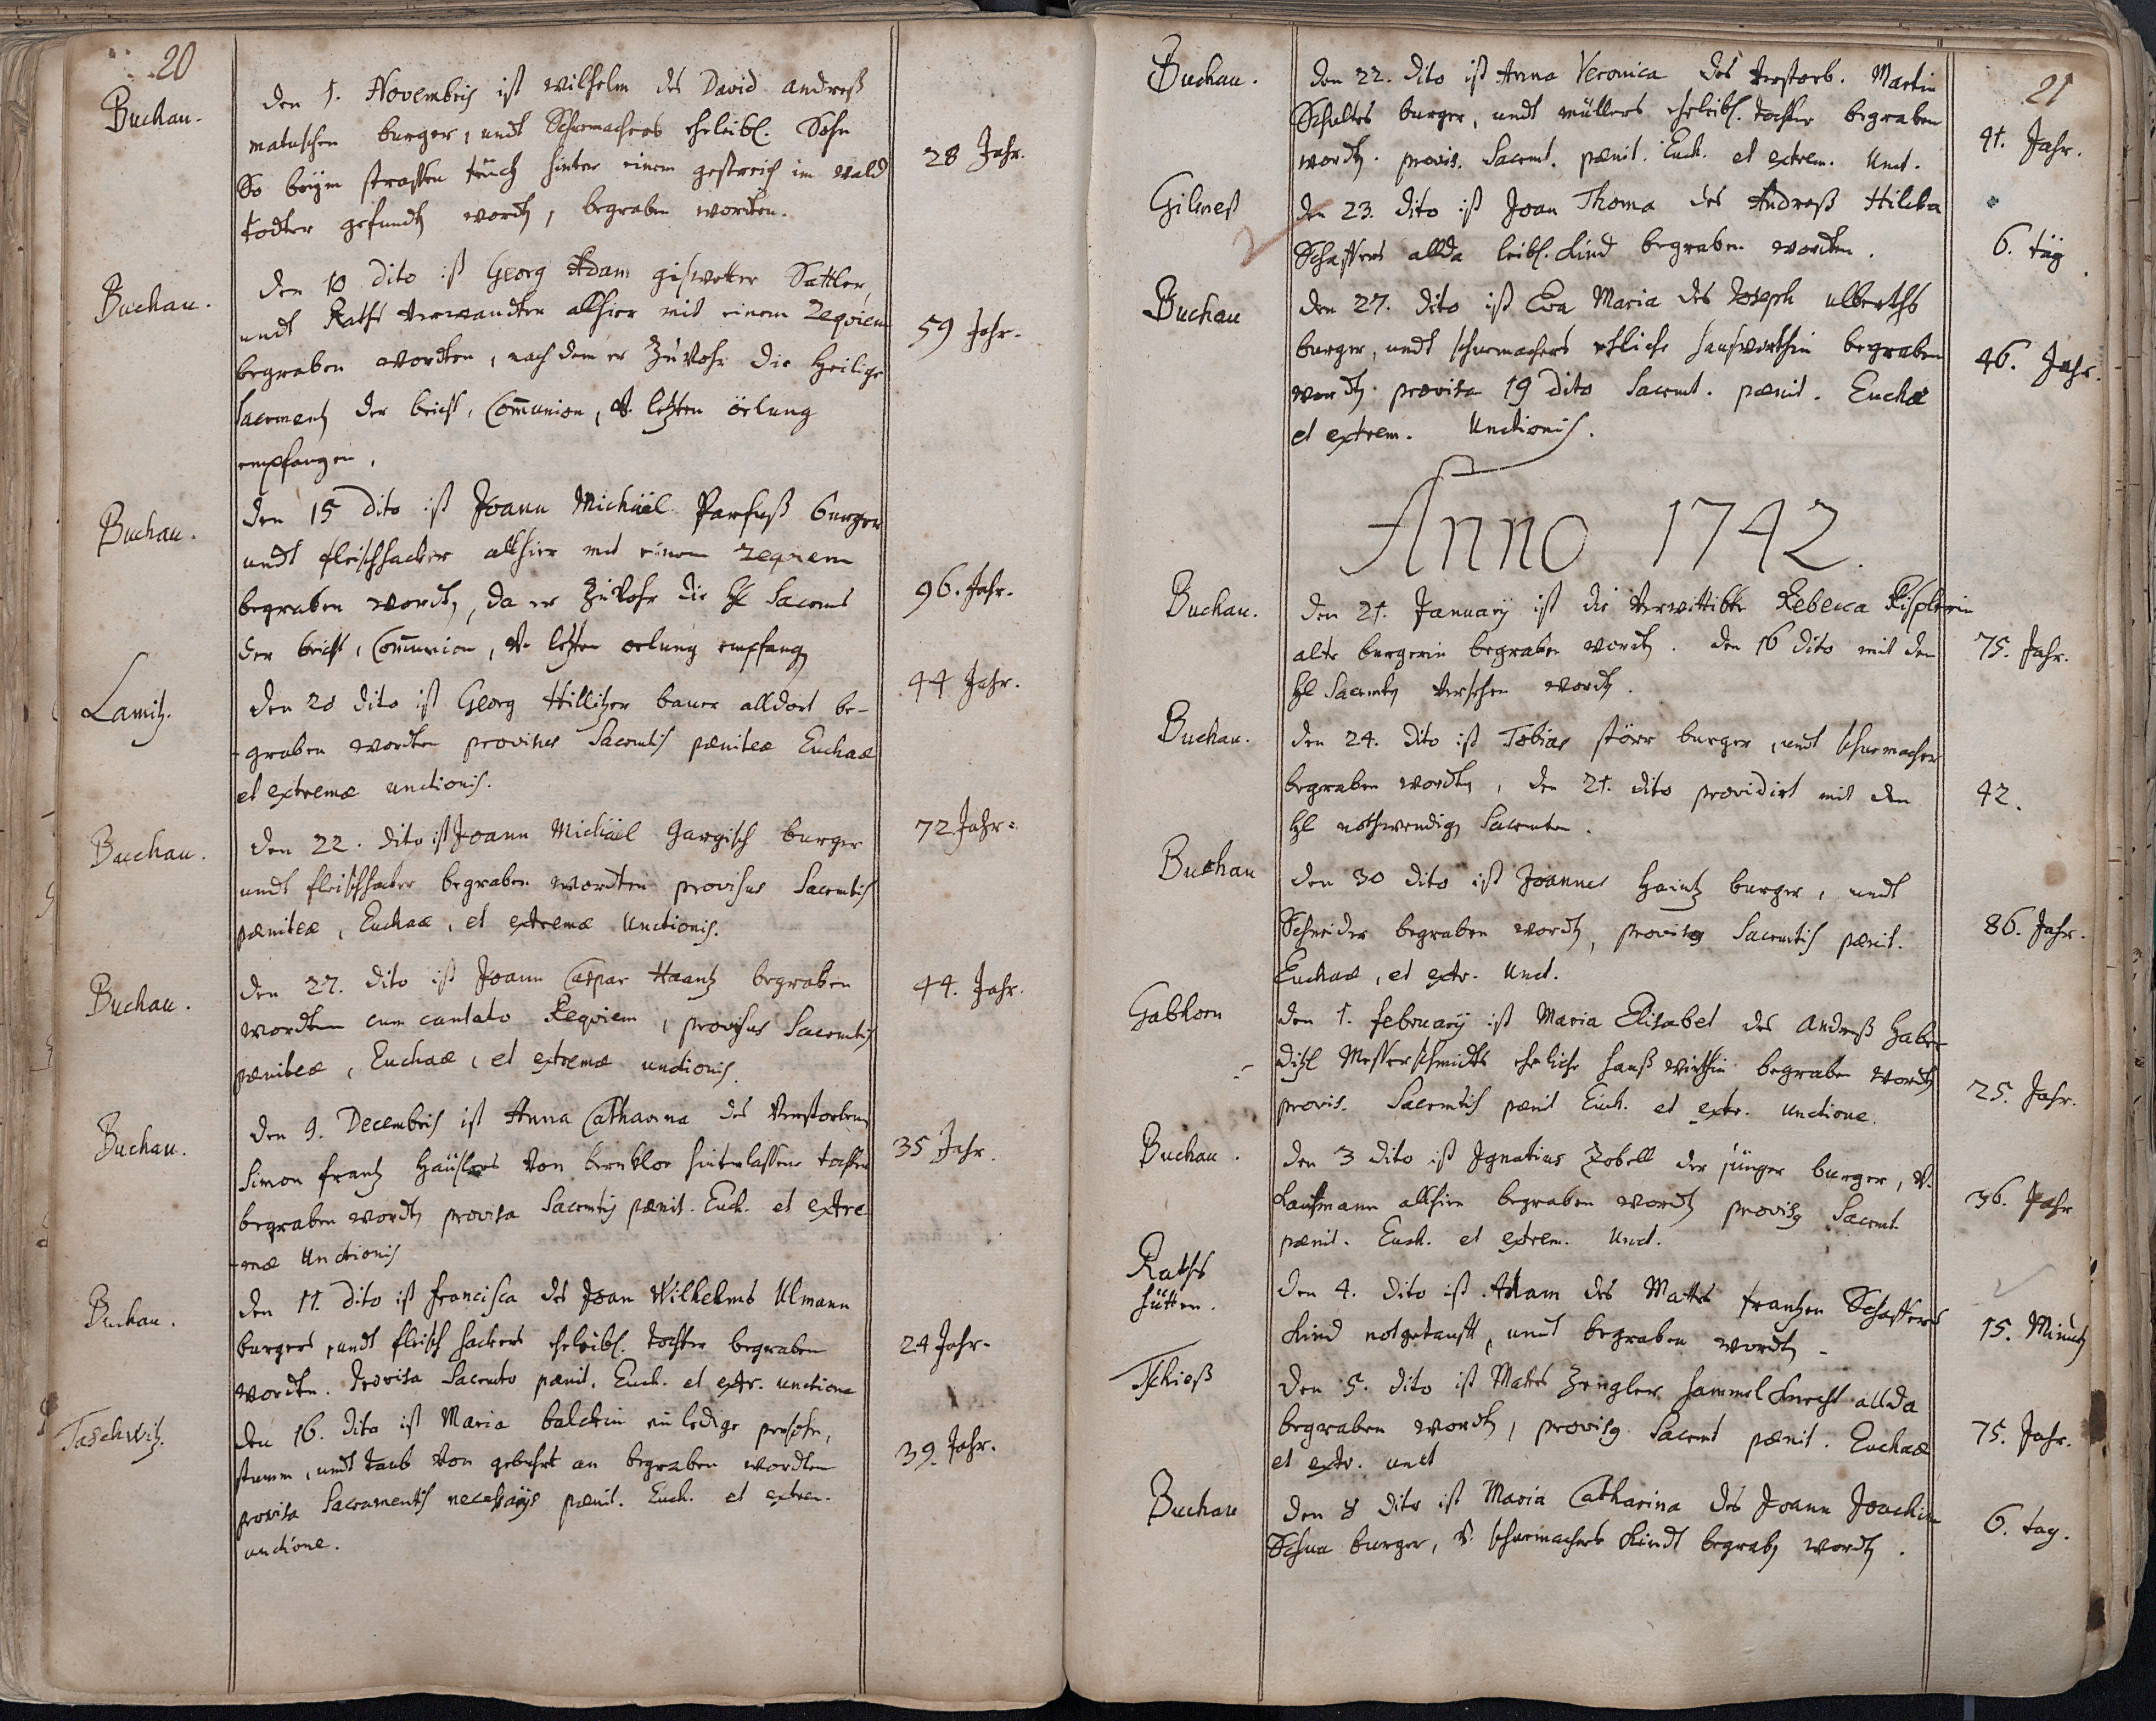 20
Buchau.
Den 1. Novembris ist wilhelm des David andreß
matuschen burger, undt Schuemachers eheleibl. Sohn
So beym strassen teüch hinter einem gestreich im wald
todter gefundt word, begraben worden.
28 Jahr.
Buchau.
Den 10 dito ist Georg Adam Sattler,
undt Raths verwandten allhier mit einem Requiem
begraben wordten, nach dem er zuvohr die Heilige
Sacrament der beicht, Communion, v. letzten öelung
empfangen.
59 Jahr.
Buchau.
Den 15 dito ist Joann Michäel Parfuß burger
undt fleischhacker allhier mit einem requiem
begraben word, da er zuvohr die Hl Sacrmt
der beicht, Communion, v. letzten oelung empfang
96. Jahr.
Lamitz.
Den 20 dito ist Georg Hillitzer bauer alldort be-
-graben wordten provisus Sacrmtis pæniteæ Euchaæ
et extremæ unctionis.
44 Jahr.
Buchau.
Den 22. dito ist Joann Michäel Gargisch burger
undt fleischhacker begraben wordten provisus Sacrmtis
pæniteæ, Euchaæ, et extremæ Unctionis.
72 Jahr.
Buchau.
Den 27. dito ist Joann Caspar Haantz begraben
wordten cum cantato Reqviem, provisus Sacrmtis
pæniteæ, Euchaæ, et extremæ unctionis.
44. Jahr.
Buchau.
Den 9. Decembris ist Anna Catharina des verstorbenen
Simon frantz Häüslers von bernklor hinterlassene tochter
begraben word provisa Sacrmtis pænit. Euch. et extre
-mæ Unctionis
35 Jahr.
Buchau.
Den 11. dito ist francisca des Joan Wilhelms Ulmann
burgers, undt fleisch hackers eheleibl. tochter begraben
wordten. Provisa Sacrmto pænit. Euch. et extr. unctione
24 Jahr.
Taschwitz.
Den 16. dito ist Maria balckin ein ledige persohn,
stumm, undt taub von gebuhrt an begraben wordten
provisa Sacramentis necessarijs pænit. Euch. et extrem.
unctione.
39. Jahr.
21
Buchau.
Den 22. dito ist Anna Veronica des verstorb. Martin
Schultes burger, undt müllers eheleibl. tochter begraben
wordt. provis. Sacrmt. pænit. Euch. et extrem. Unct.
41. Jahr.
Gilmeß
Den 23. dito ist Joan Thoma des Andreß Hilska
Schaffers allda leibl. Kind begraben wordten.
6. täg.
Buchau
Den 27. dito ist Eva Maria des Joseph ulberths
burger, undt schuemachers ehliche hauswirthin begraben
wordt. provisa 19 dito Sacrmt. pænit. Euchæ
et extrem. Unctionis.
46. Jahr.
Anno 1742.
Buchau.
Den 21. January ist die verwittibte Rebecca
alte burgerin begraben wordt. den 16 dito mit den
Hl Sacrmtn versehen wordt.
75. Jahr.
Buchau.
Den 24. dito ist Tobias störr burger, undt schuemacher
begraben wordt, den 21. dito providirt mit den
Hl nothwendig Sacrmten.
42.
Buchau
Den 30 dito ist Joannes Haintz burger, undt
Schneider begraben wordt, provisg Sacrmtis pænit.
Euchaæ, et extr. Unct.
86. Jahr.
Gabhorn
Den 1. february ist Maria Elisabet des Andreß Haber
ditzl Messerschmidts eheliche hauß wirthin begraben wordt
provis. Sacrmtis pænit Euch. et extr. unctione.
25. Jahr.
Buchau.
Den 3 dito ist Ignatius Zobell der jünger burger, v.
Kaufmann allhier begraben wordt provisg Sacrmt.
pænit. Euch. et extrem. Unct.
36. Jahr
Raths
hütten.
Den 4. dito ist Adam des Mattes frantzen Schaffers
Kind notgetaufft, undt begraben wordt.
15. Minut
Tschieß
Den 5. dito ist Mattes Zengler hammel Knecht allda
begraben wordt, provisg Sacrmt pænit. Euchaæ
et extr. unct
75. Jahr.
Buchau
Den 8 dito ist Maria Catharina des Joann Joachim
Schua burger, v. schuemachers Kindt begrab wordt.
6. tag.